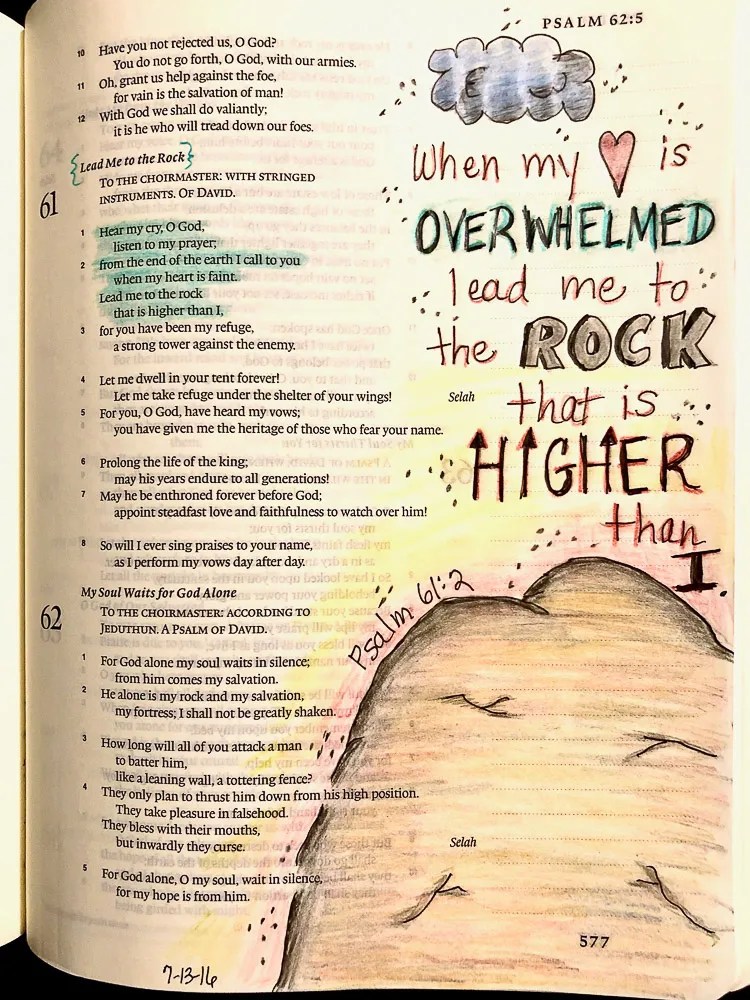 PSALM 62:5
10 Have you not rejected us, O God?
You do not go forth, O God, with our armies.
11 Oh, grant us help against the foe,
for vain is the salvation of man!
12 With God we shall do valiantly;
it is he who will tread down our foes.
Lead Me to the Rock
61 TO THE CHOIRMASTER: WITH STRINGED
INSTRUMENTS. OF DAVID.
1 Hear my cry, O God,
listen to my prayer;
2 from the end of the earth I call to you
when my heart is faint.
Lead me to the rock
that is higher than I,
3 for you have been my refuge,
a strong tower against the enemy.
4 Let me dwell in your tent forever!
Let me take refuge under the shelter of your wings! Selah
5 For you, O God, have heard my vows;
you have given me the heritage of those who fear your name.
6 Prolong the life of the king;
may his years endure to all generations!
7 May he be enthroned forever before God;
appoint steadfast love and faithfulness to watch over him!
8 So will I ever sing praises to your name,
as I perform my vows day after day.
My Soul Waits for God Alone
62 TO THE CHOIRMASTER: ACCORDING TO
JEDUTHUN. A PSALM OF DAVID.
1 For God alone my soul waits in silence;
from him comes my salvation.
2 He alone is my rock and my salvation,
my fortress; I shall not be greatly shaken.
3 How long will all of you attack a man
to batter him,
like a leaning wall, a tottering fence?
4 They only plan to thrust him down from his high position.
They take pleasure in falsehood.
They bless with their mouths,
but inwardly they curse. Selah
5 For God alone, O my soul, wait in silence,
for my hope is from him.
When my is
OVERWHELMED
lead me to
the ROCK
that is
HIGHER
than
I.
Psalm 61:2
577
7-13-16